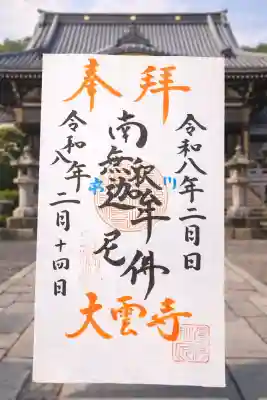 奉拝
令和八年二月日
南無釈迦牟尼佛
令和八年二月十四日
大雲寺